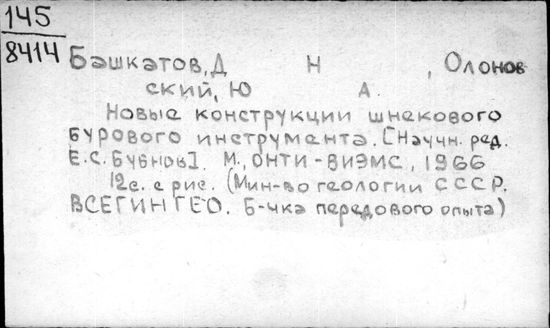 145
8414
Башкатов, Д Н , Олонов
ский, Ю А.
Новые конструкции шнекового
бурового инструмента. [Научн. ред.
Е.С. Бубнов]. М., ОНТИ-ВИЭМС, 1966
12с. с рис. (Мин-во геологии СССР.
ВСЕГИНГЕО. Б-чка передового опыта)